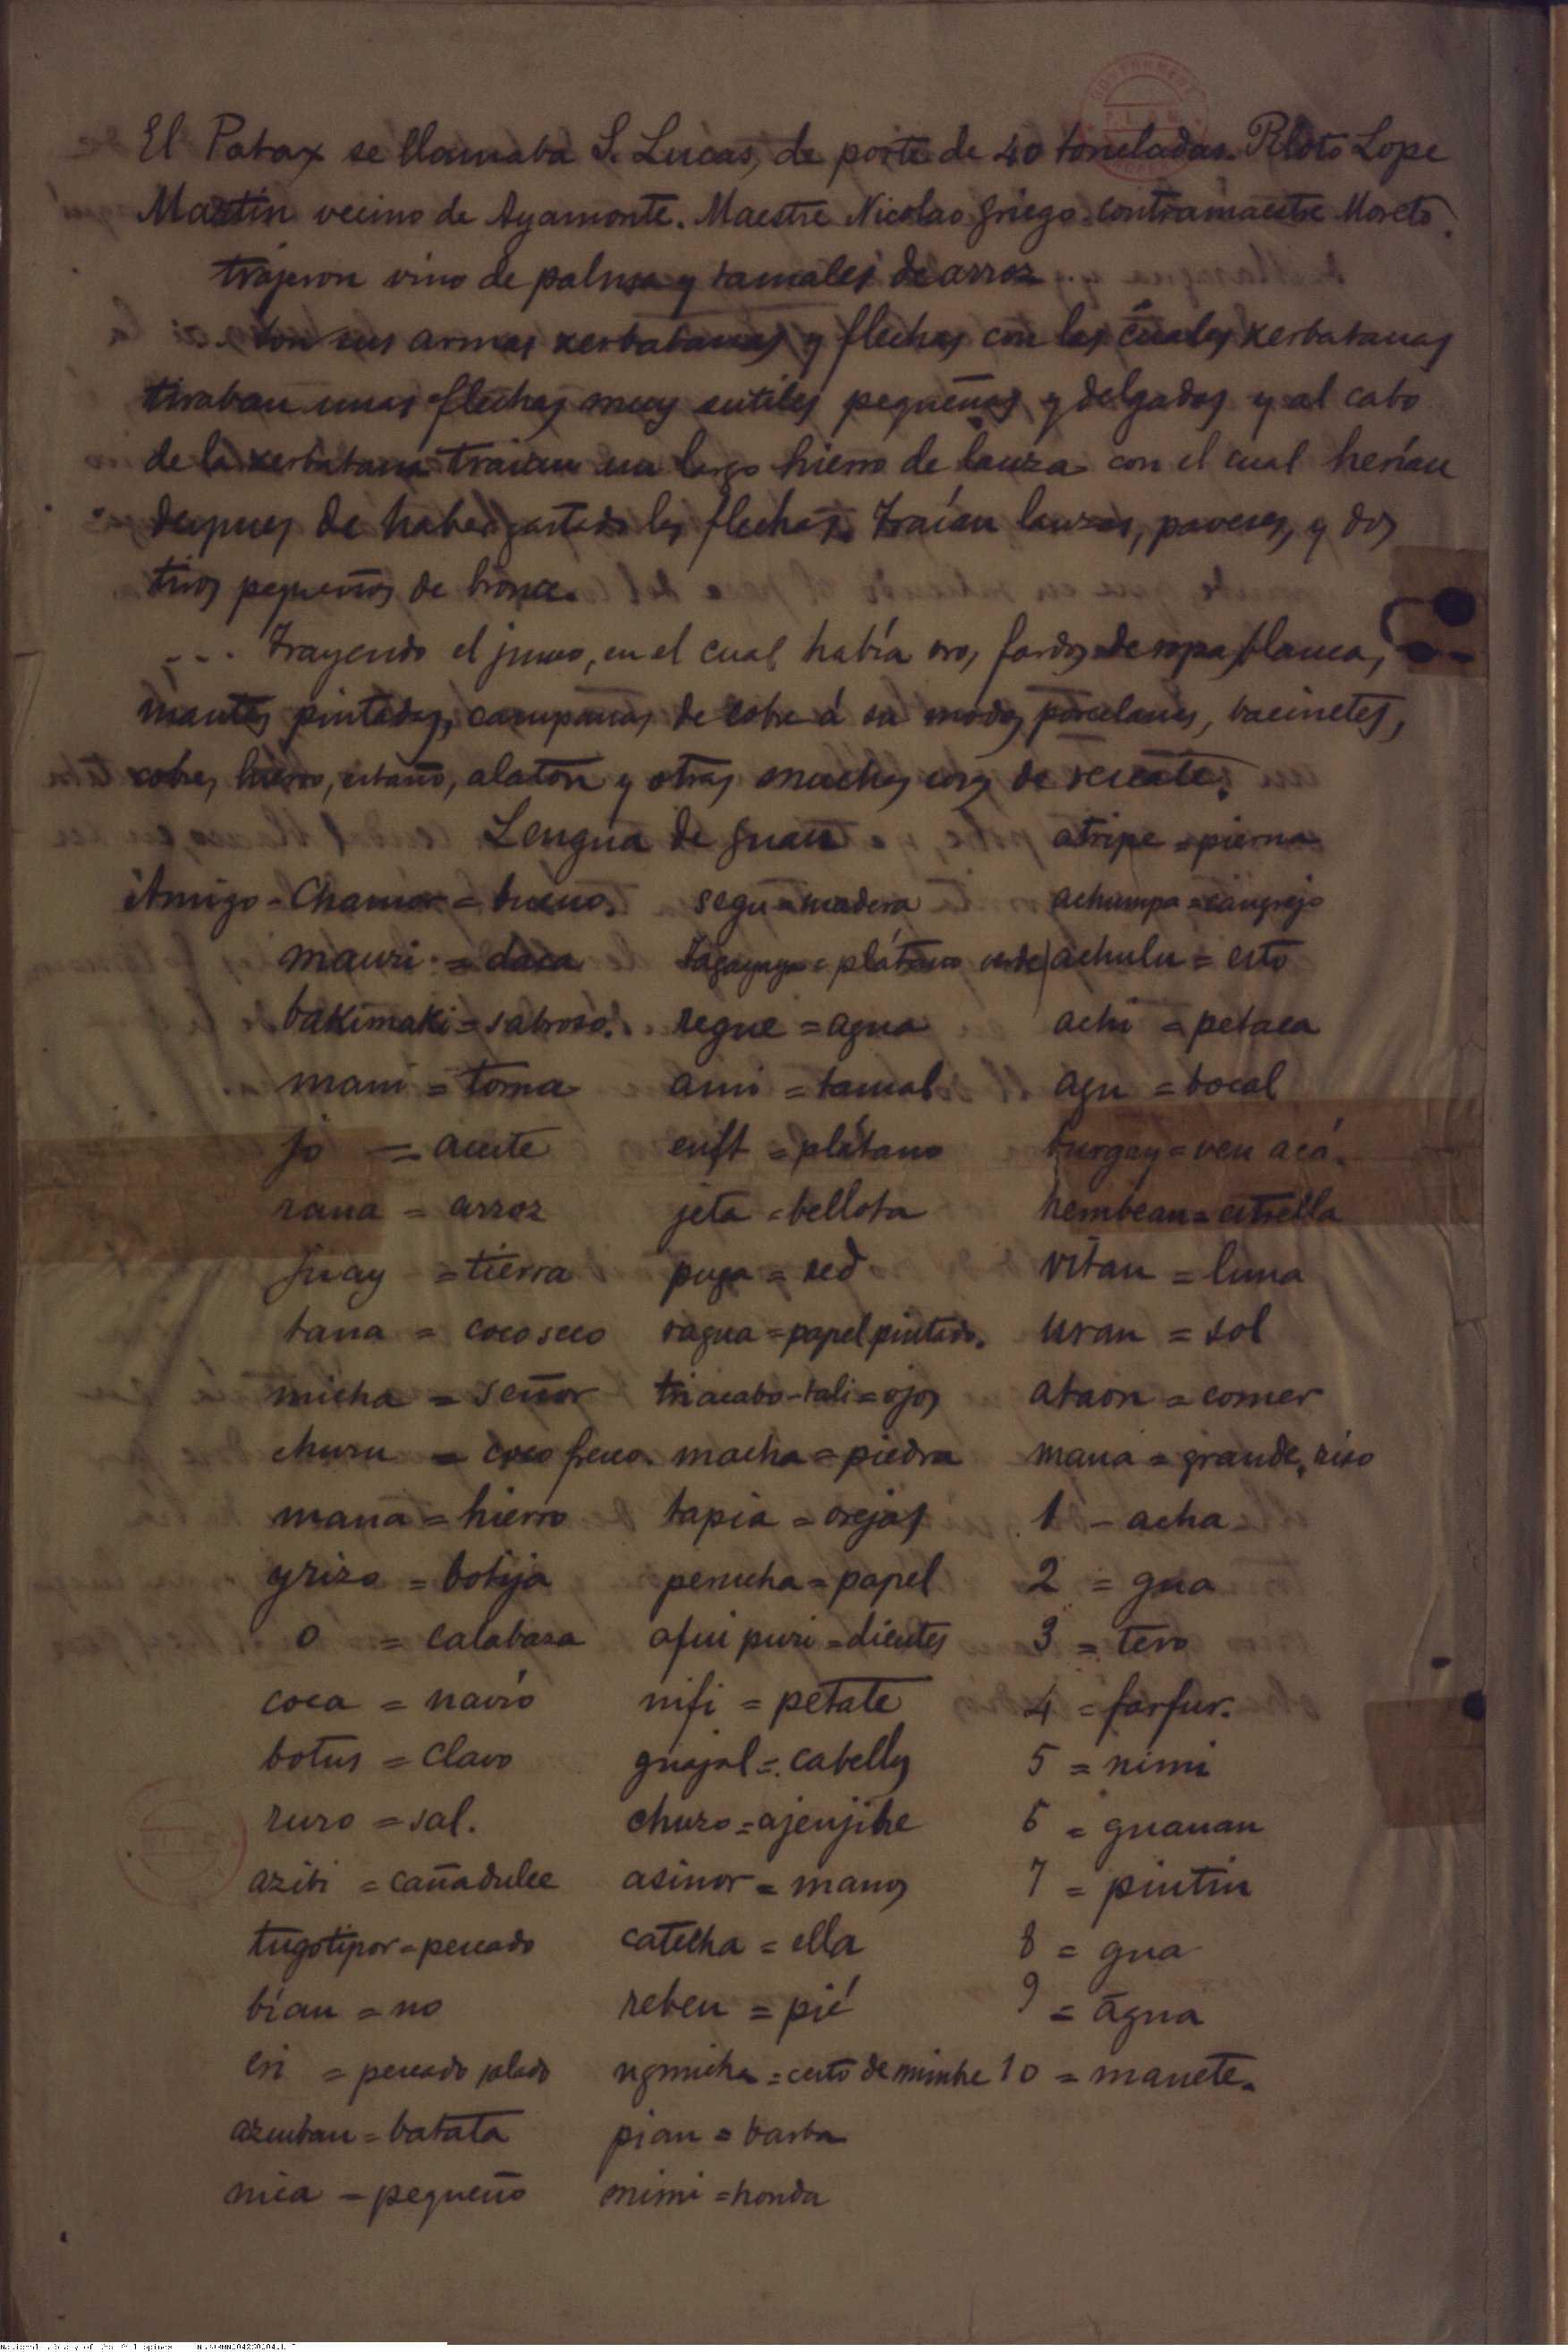 El Patax se llamaba S. Lucas, de porte de 40 toneladas. Piloto Lope
Martin vecino de Ayamonte. Maestre Nicolao griego. contramaestre Moreto.
trajeron vino de palma y tamales de arroz
con sus armas xerbatanas y flechas con las cuales xerbatanas
tiraban unas flechas muy sutiles pequeñas y delgadas y al cabo
de la xerbatana traian un largo hierro de lanza con el cual herían
despues de haber gastado las flechas. Traían lanzas, paveses, y dos
tiros pequeños de bronce.
... Trayendo el junco, en el cual había oro, fardos de ropa blanca,
mantas pintadas, campanas de cobre á su modo, porcelanas, bacinetes,
cobre, hierro, estaño, alaton y otras muchas cosas de rescate.
Lengua de guan
atripe = pierna
Amigo - Chamor = bueno. segu = madera achumpa = cangrejo
mauri = daca tagayaya = plátano verde achulu = esto
bakimaki = sabroso. regue = agua achi = petaca
mani = toma aini = tamal agu = bocal
jo = aceite enft = plátano burgay = ven acá.
rana = arroz jeta = bellota hembean = estrella
juay = tierra puga = red vitan = luna
tana = coco seco ragua = papel pintado. uran = sol
micha = señor triacabo-tali = ojos ataon = comer
churu = coco fresco. macha = piedra mana = grande, riso
mana = hierro tapia = orejas 1 - acha
yrizo = botija perucha = papel 2 = gua
o = calabaza afui puri = dientes 3 = tero
coca = navío nifi = petate 4 = farfur.
botus = clavo guajal = cabellos 5 = nimi
zuro = sal. churo = ajenjibe 6 = guanan
azibi = caña dulce asinor = manos 7 = pintin
tugotipor = pescado catecha = ella 8 = gua
bían = no reben = pié 9 = agua
eri = pescado salado ngmicha = cesto de mimbre 10 = manete.
azuiban = batata pian = barba
nica = pequeño mimi = honda